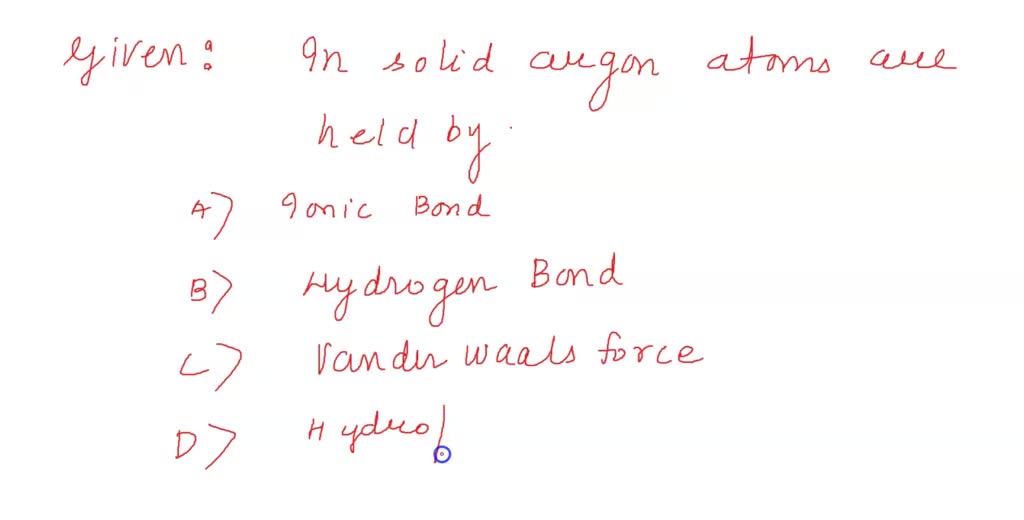 Given: In solid argon atoms are
held by.
A) Ionic Bond
B) Hydrogen Bond
C) Vander waals force
D) Hydrop